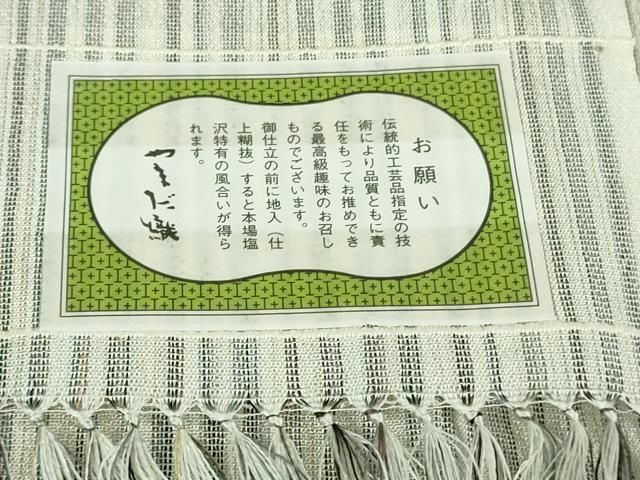 お願い
伝統的工芸品指定の技
術により品質ともに責
任をもってお推めでき
る最高級趣味のお召し
ものでございます。
御仕立の前に地入（仕
上糊抜）すると本場塩
沢特有の風合いが得ら
れます。
やまだ織